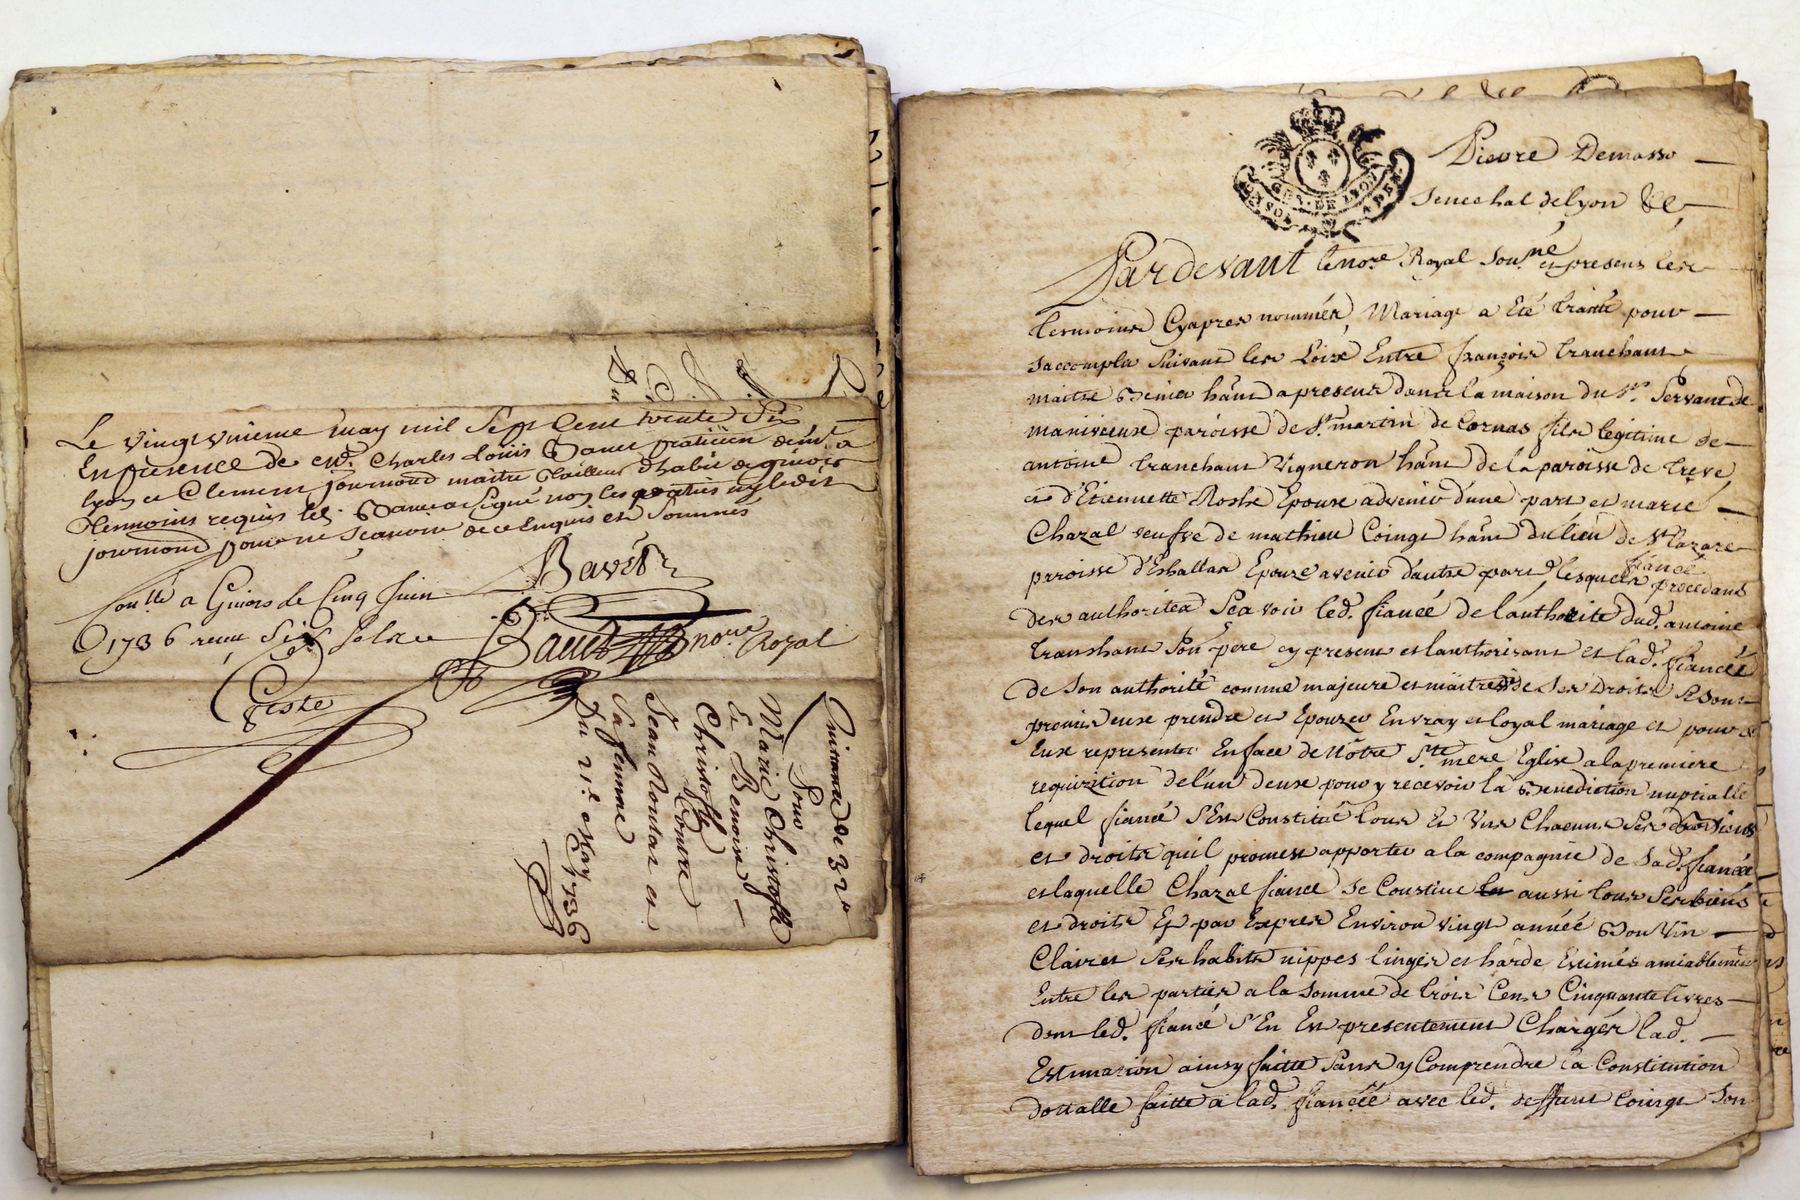 Le vingt unieme may mil sept cent trente six
En presence de Charles Louis praticien demt a
lyon et Clement journoud maitre tailleur d'habit de givors
temoins requis led. a signé non les parties ny ledit
journoud pour ne scavoir de ce enquis et sommés
Bavet
Conllé a Givors le Cinq Juin
1736 receu Six sols
Bavet nore Royal
Geste
Quittance de 32
Pour
Marie Christofle
Et Benoite
Christofle
Contre
Jean et
Sa femme
Du 21e May 1736
GEN. DE LYON
Pierre Demasso
Senechal de lyon &c
Pardevant le nore Royal sousné et presens les
temoins Cyapres nommés, Mariage a Eté traitté pour
saccomplir suivant les Loix Entre françois tranchant
maitre hânt apresent dans la maison du Sr. Servant de
manivieuse paroisse de St martin de Cornas fils legitime de
antoine tranchant Vigneron hânt de la paroisse de treve
et d'Etiennette Epoux advenir d'une part et marie
Chazal veufve de mathieu Coingt hânt du lieu de St lazare
paroisse d'Eshallas Epouze avenir d'autre part, lesquels fiancé procedans
des authorites Scavoir led. fiancé de l'authorité dud. antoine
tranchant Son pere cy present et lauthorisant et lad. fiancéé
de Son authorité comme majeure et maitresse de Ses Droits Se Sont
promis Eux prendre et Epouzer En vray et loyal mariage et pour ce
Eux representer En face de Nôtre Ste mere Eglise a la premiere
requizition de l'un deux pour y recevoir la Benediction nuptialle
lequel fiancé S'Est Constitué tous Et Uns Chacuns Ses Biens
et droits quil promest apporter a la compagnie de Sad. fiancéé
et laquelle Chazal fiancée Se Constitue aussi tous Ses biens
et droits Et par Exprex Environ vingt annéé Bon Vin
Clairet Ses habits nippes linges et harde Estimés amiablement
Entre les parties a la Somme de trois Cens Cinquante livres
dont led. fiancé S'En Est presentement Chargér lad.
Estimation ainsy faitte Sans y Comprendre la Constitution
dottalle faitte a lad. fiancéé avec led. deffunt Coingt Son